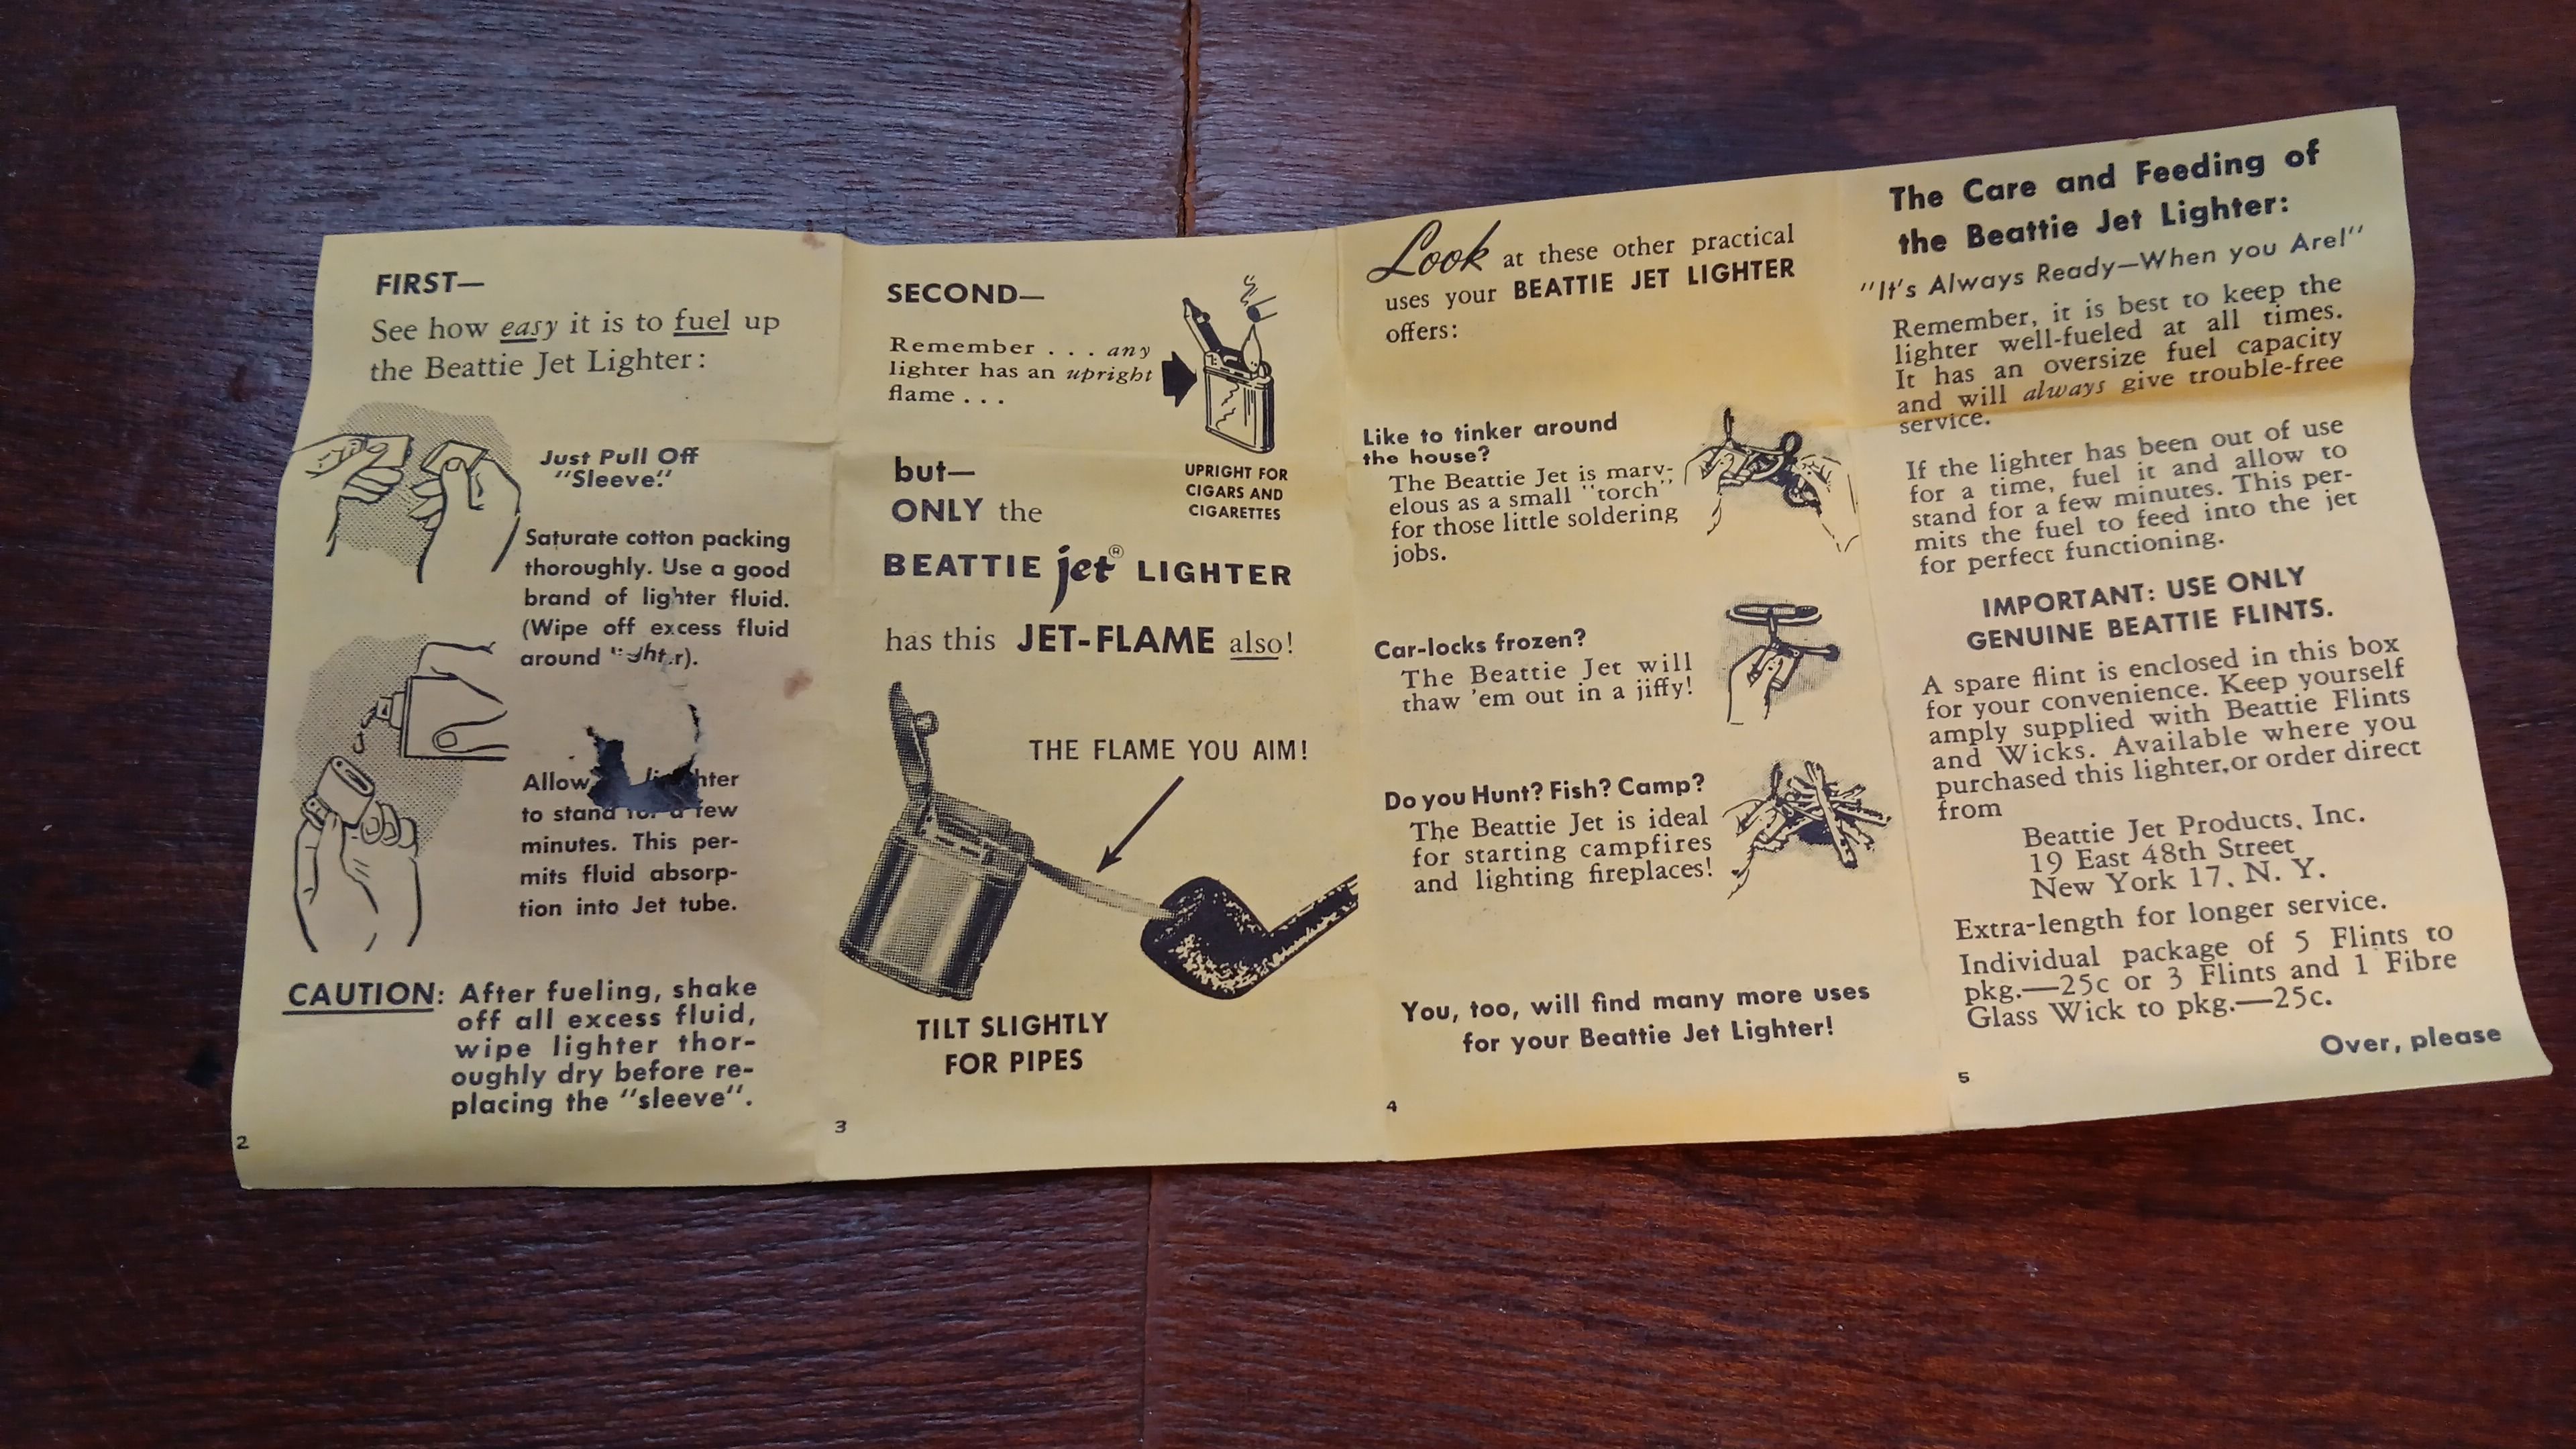 FIRST—
See how easy it is to fuel up
the Beattie Jet Lighter:
Just Pull Off
"Sleeve."
Saturate cotton packing
thoroughly. Use a good
brand of lighter fluid.
(Wipe off excess fluid
around lighter).
Allow lighter
to stand for a few
minutes. This per-
mits fluid absorp-
tion into Jet tube.
CAUTION: After fueling, shake
off all excess fluid,
wipe lighter thor-
oughly dry before re-
placing the "sleeve".
2
SECOND—
Remember . . . any
lighter has an upright
flame . . .
UPRIGHT FOR
CIGARS AND
CIGARETTES
but—
ONLY the
BEATTIE jet® LIGHTER
has this JET-FLAME also!
THE FLAME YOU AIM!
TILT SLIGHTLY
FOR PIPES
3
Look at these other practical
uses your BEATTIE JET LIGHTER
offers:
Like to tinker around
the house?
The Beattie Jet is marv-
elous as a small "torch"
for those little soldering
jobs.
Car-locks frozen?
The Beattie Jet will
thaw 'em out in a jiffy!
Do you Hunt? Fish? Camp?
The Beattie Jet is ideal
for starting campfires
and lighting fireplaces!
You, too, will find many more uses
for your Beattie Jet Lighter!
4
The Care and Feeding of
the Beattie Jet Lighter:
"It's Always Ready—When you Are!"
Remember, it is best to keep the
lighter well-fueled at all times.
It has an oversize fuel capacity
and will always give trouble-free
service.
If the lighter has been out of use
for a time, fuel it and allow to
stand for a few minutes. This per-
mits the fuel to feed into the jet
for perfect functioning.
IMPORTANT: USE ONLY
GENUINE BEATTIE FLINTS.
A spare flint is enclosed in this box
for your convenience. Keep yourself
amply supplied with Beattie Flints
and Wicks. Available where you
purchased this lighter, or order direct
from
Beattie Jet Products, Inc.
19 East 48th Street
New York 17, N. Y.
Extra-length for longer service.
Individual package of 5 Flints to
pkg.—25c or 3 Flints and 1 Fibre
Glass Wick to pkg.—25c.
Over, please
5